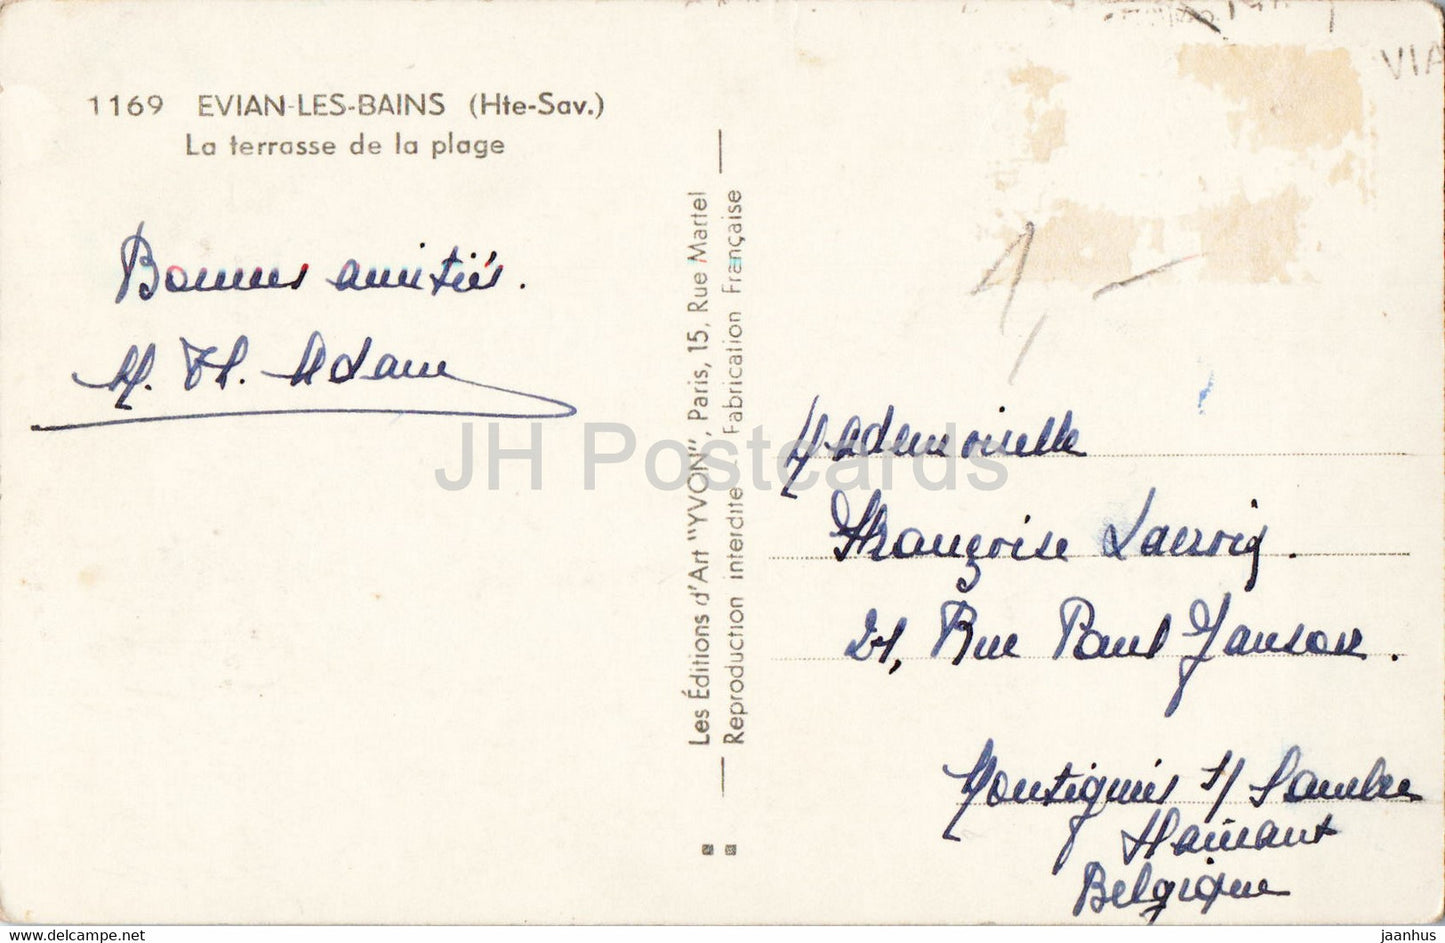 1169 EVIAN-LES-BAINS (Hte-Sav.)
La terrasse de la plage
Bonnes amitiés.
M. Th. Adam
Les Éditions d'Art "YVON", Paris, 15, Rue Martel
Reproduction interdite Fabrication Française
1,-
VIA
Mademoiselle
Françoise
21, Rue Paul Janson.
Montignies s/ Sambre
Hainaut
Belgique
JH Postcards
www.delcampe.net
jaanhus